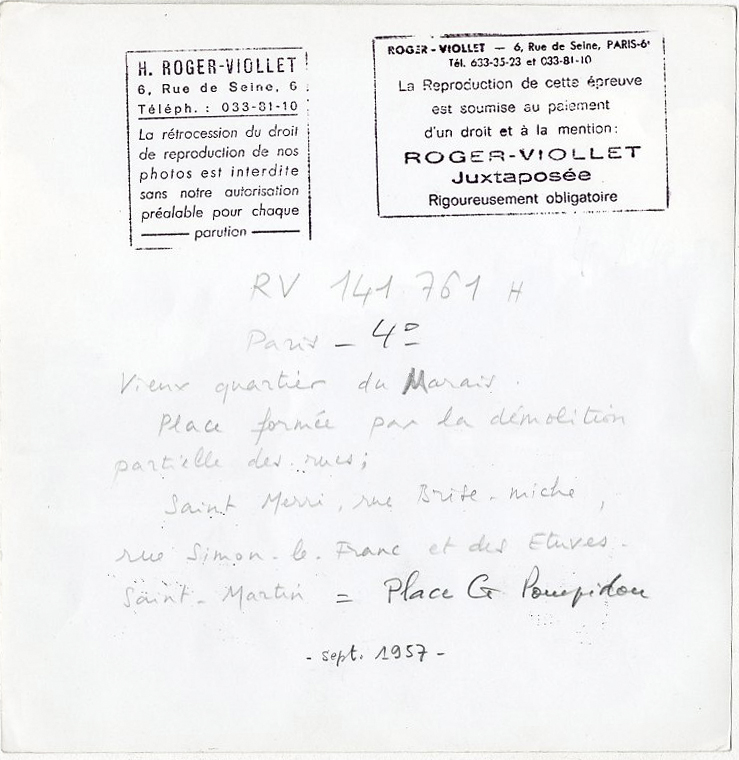 H. ROGER-VIOLLET
6, Rue de Seine, 6
Téléph. : 033-81-10
La rétrocession du droit
de reproduction de nos
photos est interdite
sans notre autorisation
préalable pour chaque
parution
ROGER-VIOLLET — 6, Rue de Seine, PARIS-6e
Tél. 633-35-23 et 033-81-10
La Reproduction de cette épreuve
est soumise au paiement
d'un droit et à la mention:
ROGER-VIOLLET
Juxtaposée
Rigoureusement obligatoire
RV 141 761 H
Paris - 4e
Vieux quartier du Marais.
Place formée par la démolition
partielle des rues;
Saint Merri, rue Brise-miche,
rue Simon-le-Franc et des Etuves-
Saint-Martin = Place G Pompidou
- sept. 1957 -